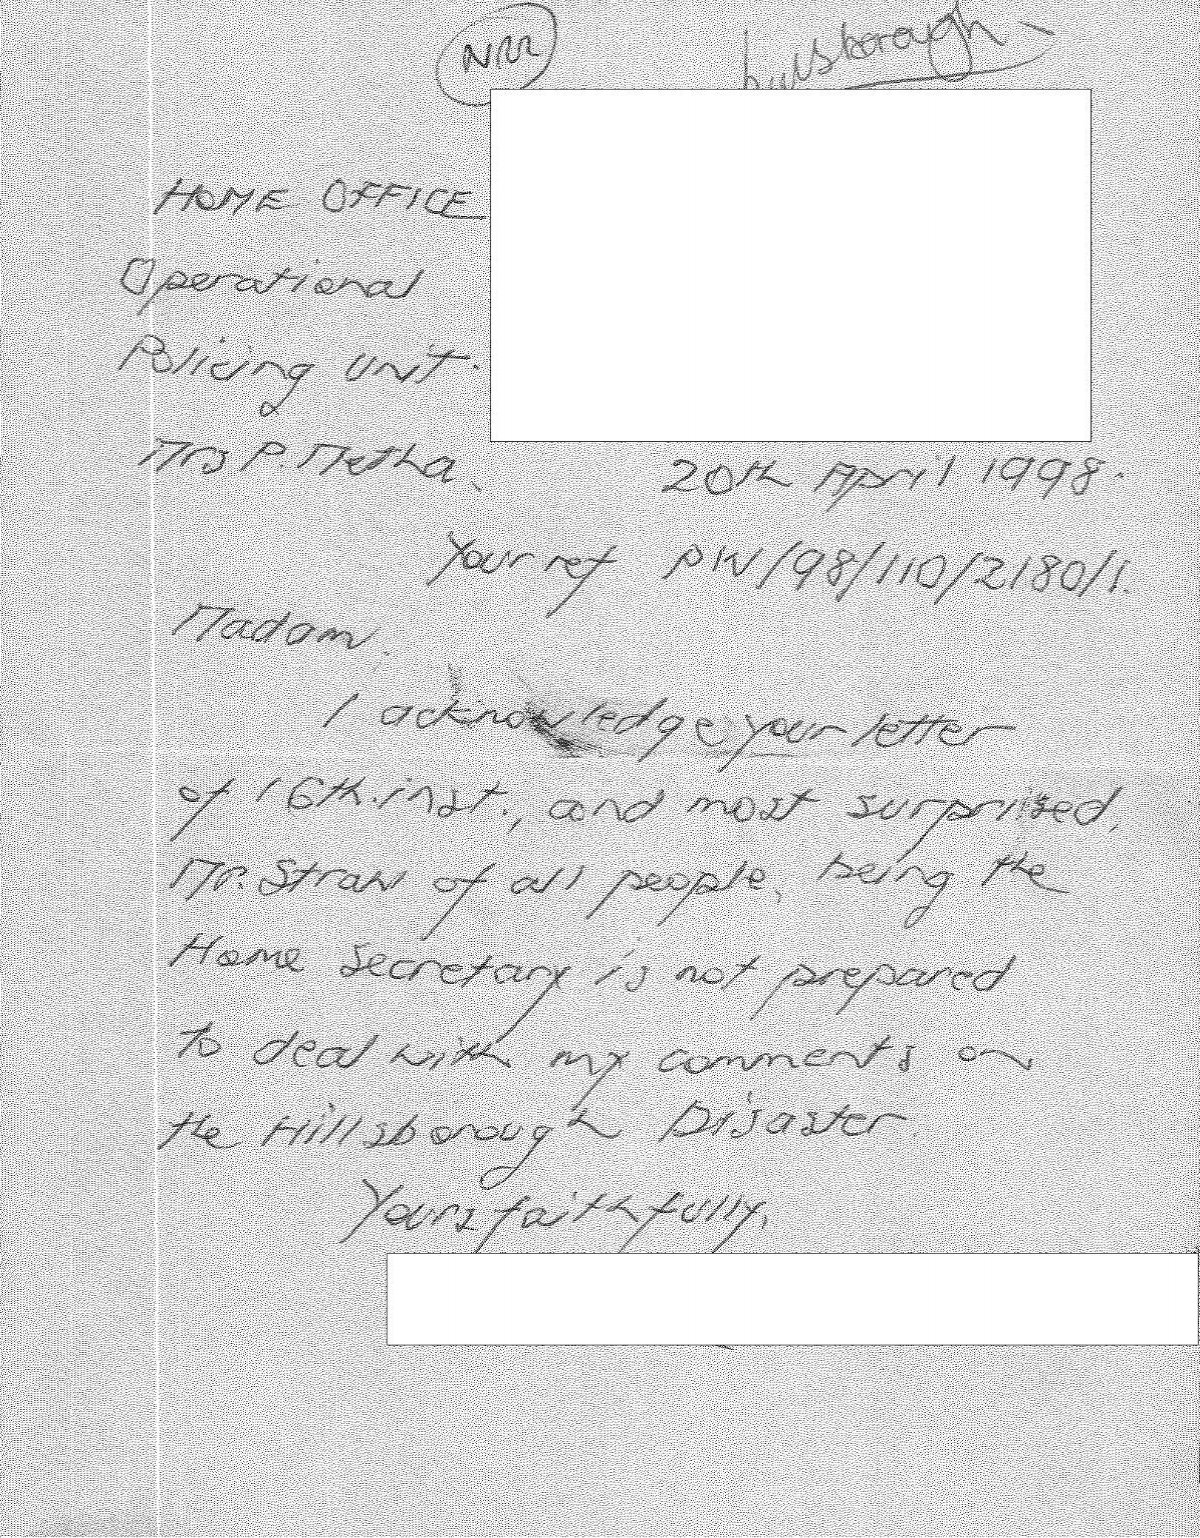 NRR
hillsborough
HOME OFFICE
Operational
Policing Unit.
Mrs P. Metha.
20th April 1998.
Your ref PW/98/110/2180/1.
Madam.
I acknowledge your letter
of 16th.inst., and most surprised,
Mr. Straw of all people, being the
Home Secretary is not prepared
to deal with my comments on
the Hillsborough Disaster
Yours faithfully,